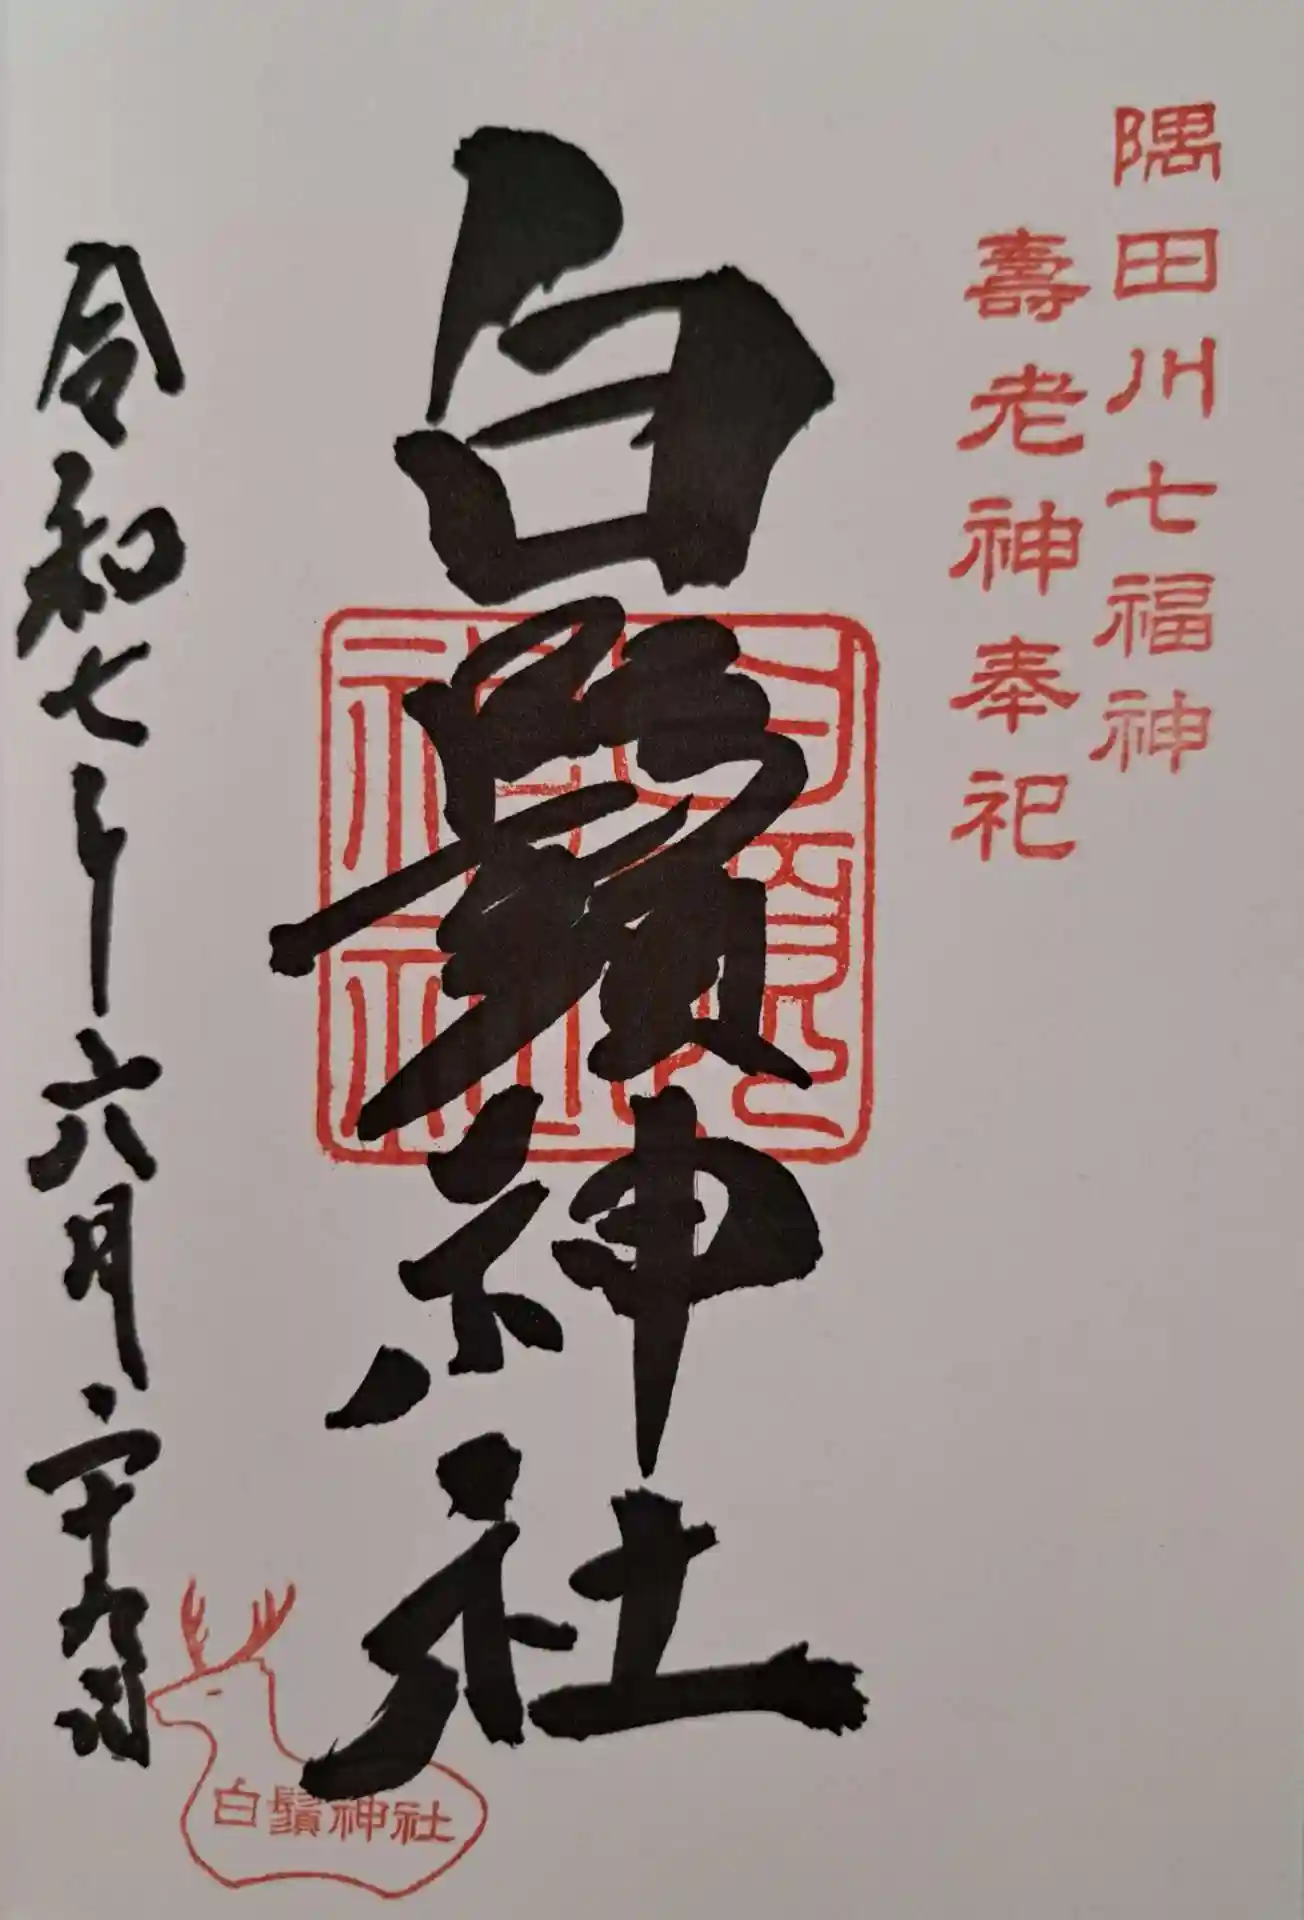 隅田川七福神
壽老神奉祀
白鬚神社
白鬚神社
令和七年六月二十九日
白鬚神社